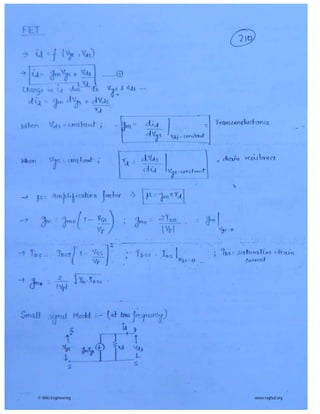 FET
210
→ id = f (Vgs, Vds)
→ id = gm Vgs + Vds/rd —①
Change in id due to Vgs & Vds —
did = gm dVgs + dVds/rd
When Vds = constant ; gm = did/dVgs | Vds = constant = Transconductance
When Vgs = constant ; rd = dVds/did | Vgs = constant , drain resistance
→ μ = amplification factor ⇒ μ = gm × rd
→ gm = gmo (1 − VGS/VP) ; gmo = 2IDSS/|VP| = gm | VGS=0
→ IDS = IDSS (1 − VGS/VP)² ; IDSS = IDS | VGS=0 ; IDS = saturation drain current
→ gm = 2/|VP| √IDS·IDSS
Small signal Model :- (at low frequency)
G id D
Vgs gmVgs rd Vds
S S
© Wiki Engineering www.raghul.org